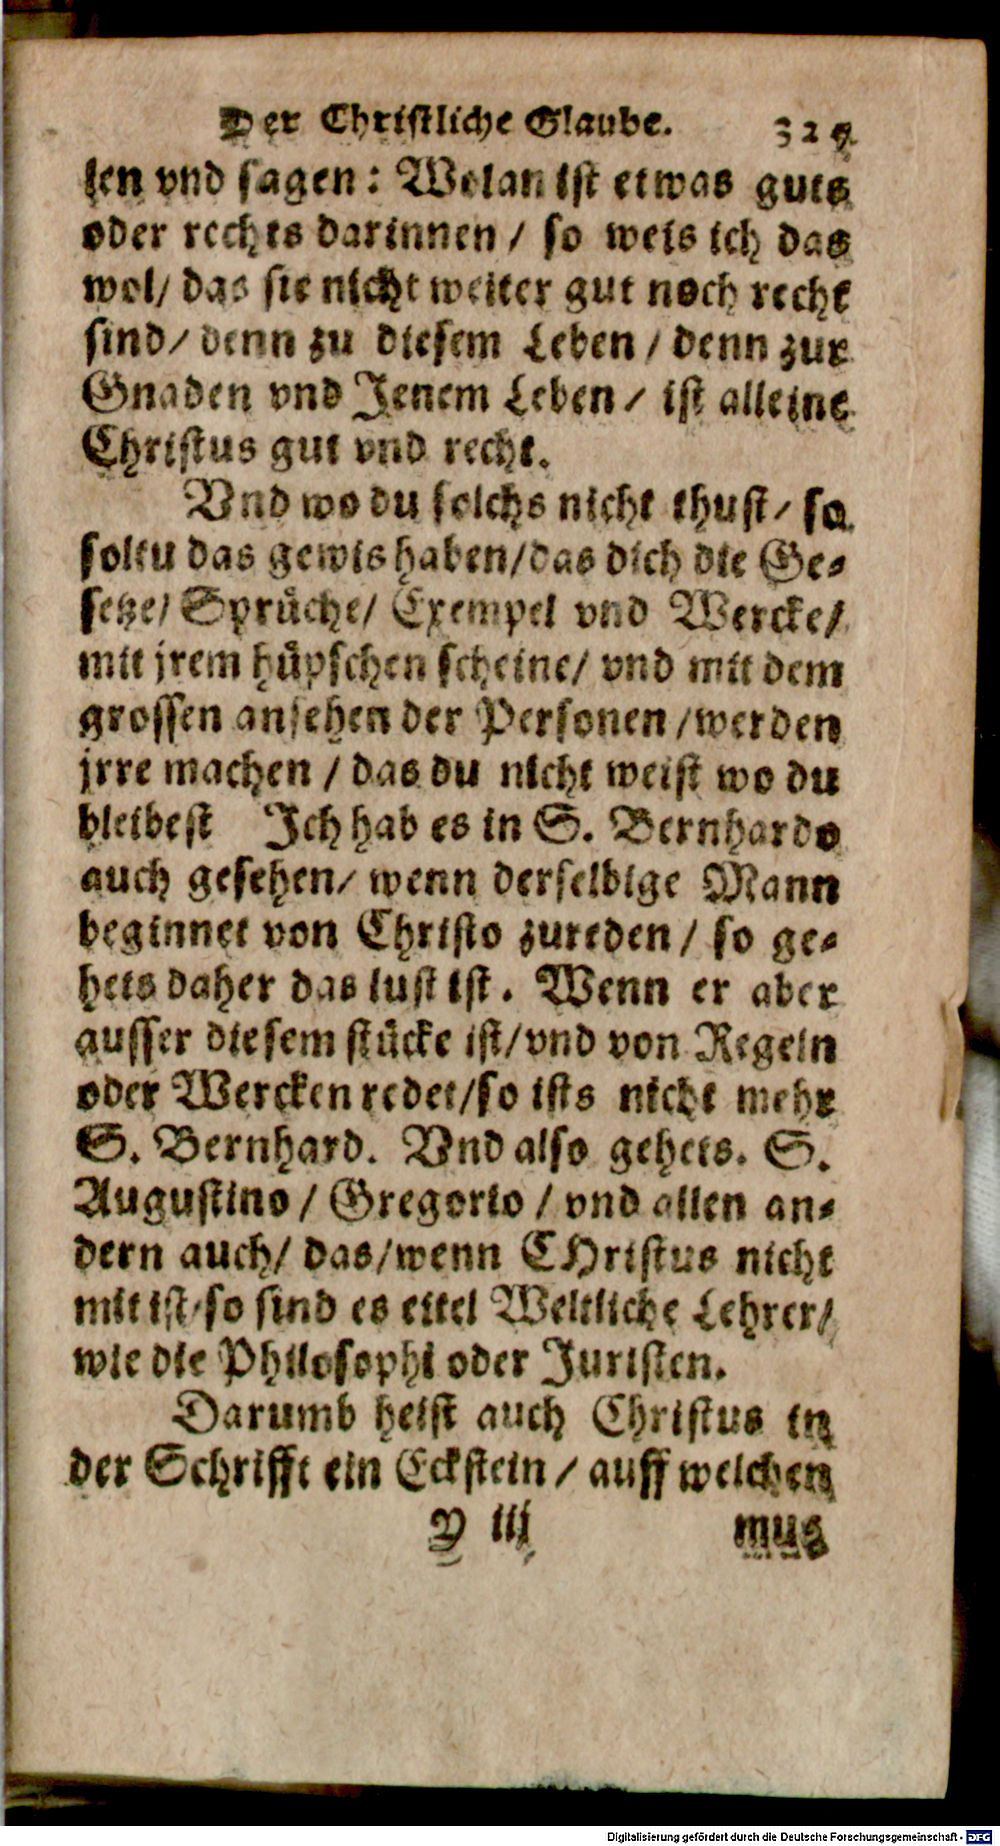 Der Christliche Glaube. 325.
len vnd sagen: Wolan ist etwas guts
oder rechts darinnen / so weis ich das
wol/ das sie nicht weiter gut noch recht
sind/ denn zu diesem Leben / denn zur
Gnaden vnd Jenem Leben / ist alleine
Christus gut vnd recht.
Vnd wo du solchs nicht thust/ so
soltu das gewis haben/das dich die Ge-
setze/ Sprüche/ Exempel vnd Wercke/
mit jrem hüpschen scheine/ vnd mit dem
grossen ansehen der Personen /werden
jrre machen / das du nicht weist wo du
bleibest Jch hab es in S. Bernhardo
auch gesehen/ wenn derselbige Mann
beginnet von Christo zureden / so ge-
hets daher das lust ist. Wenn er aber
ausser diesem stücke ist/vnd von Regeln
oder Wercken redet/so ists nicht mehr
S. Bernhard. Vnd also gehets. S.
Augustino / Gregorio / vnd allen an-
dern auch/ das/wenn CHristus nicht
mit ist/so sind es eitel Weltliche Lehrer/
wie die Philosophi oder Juristen.
Darumb heist auch Christus in
der Schrifft ein Eckstein / auff welchen
Y iij mus
Digitalisierung gefördert durch die Deutsche Forschungsgemeinschaft - DFG